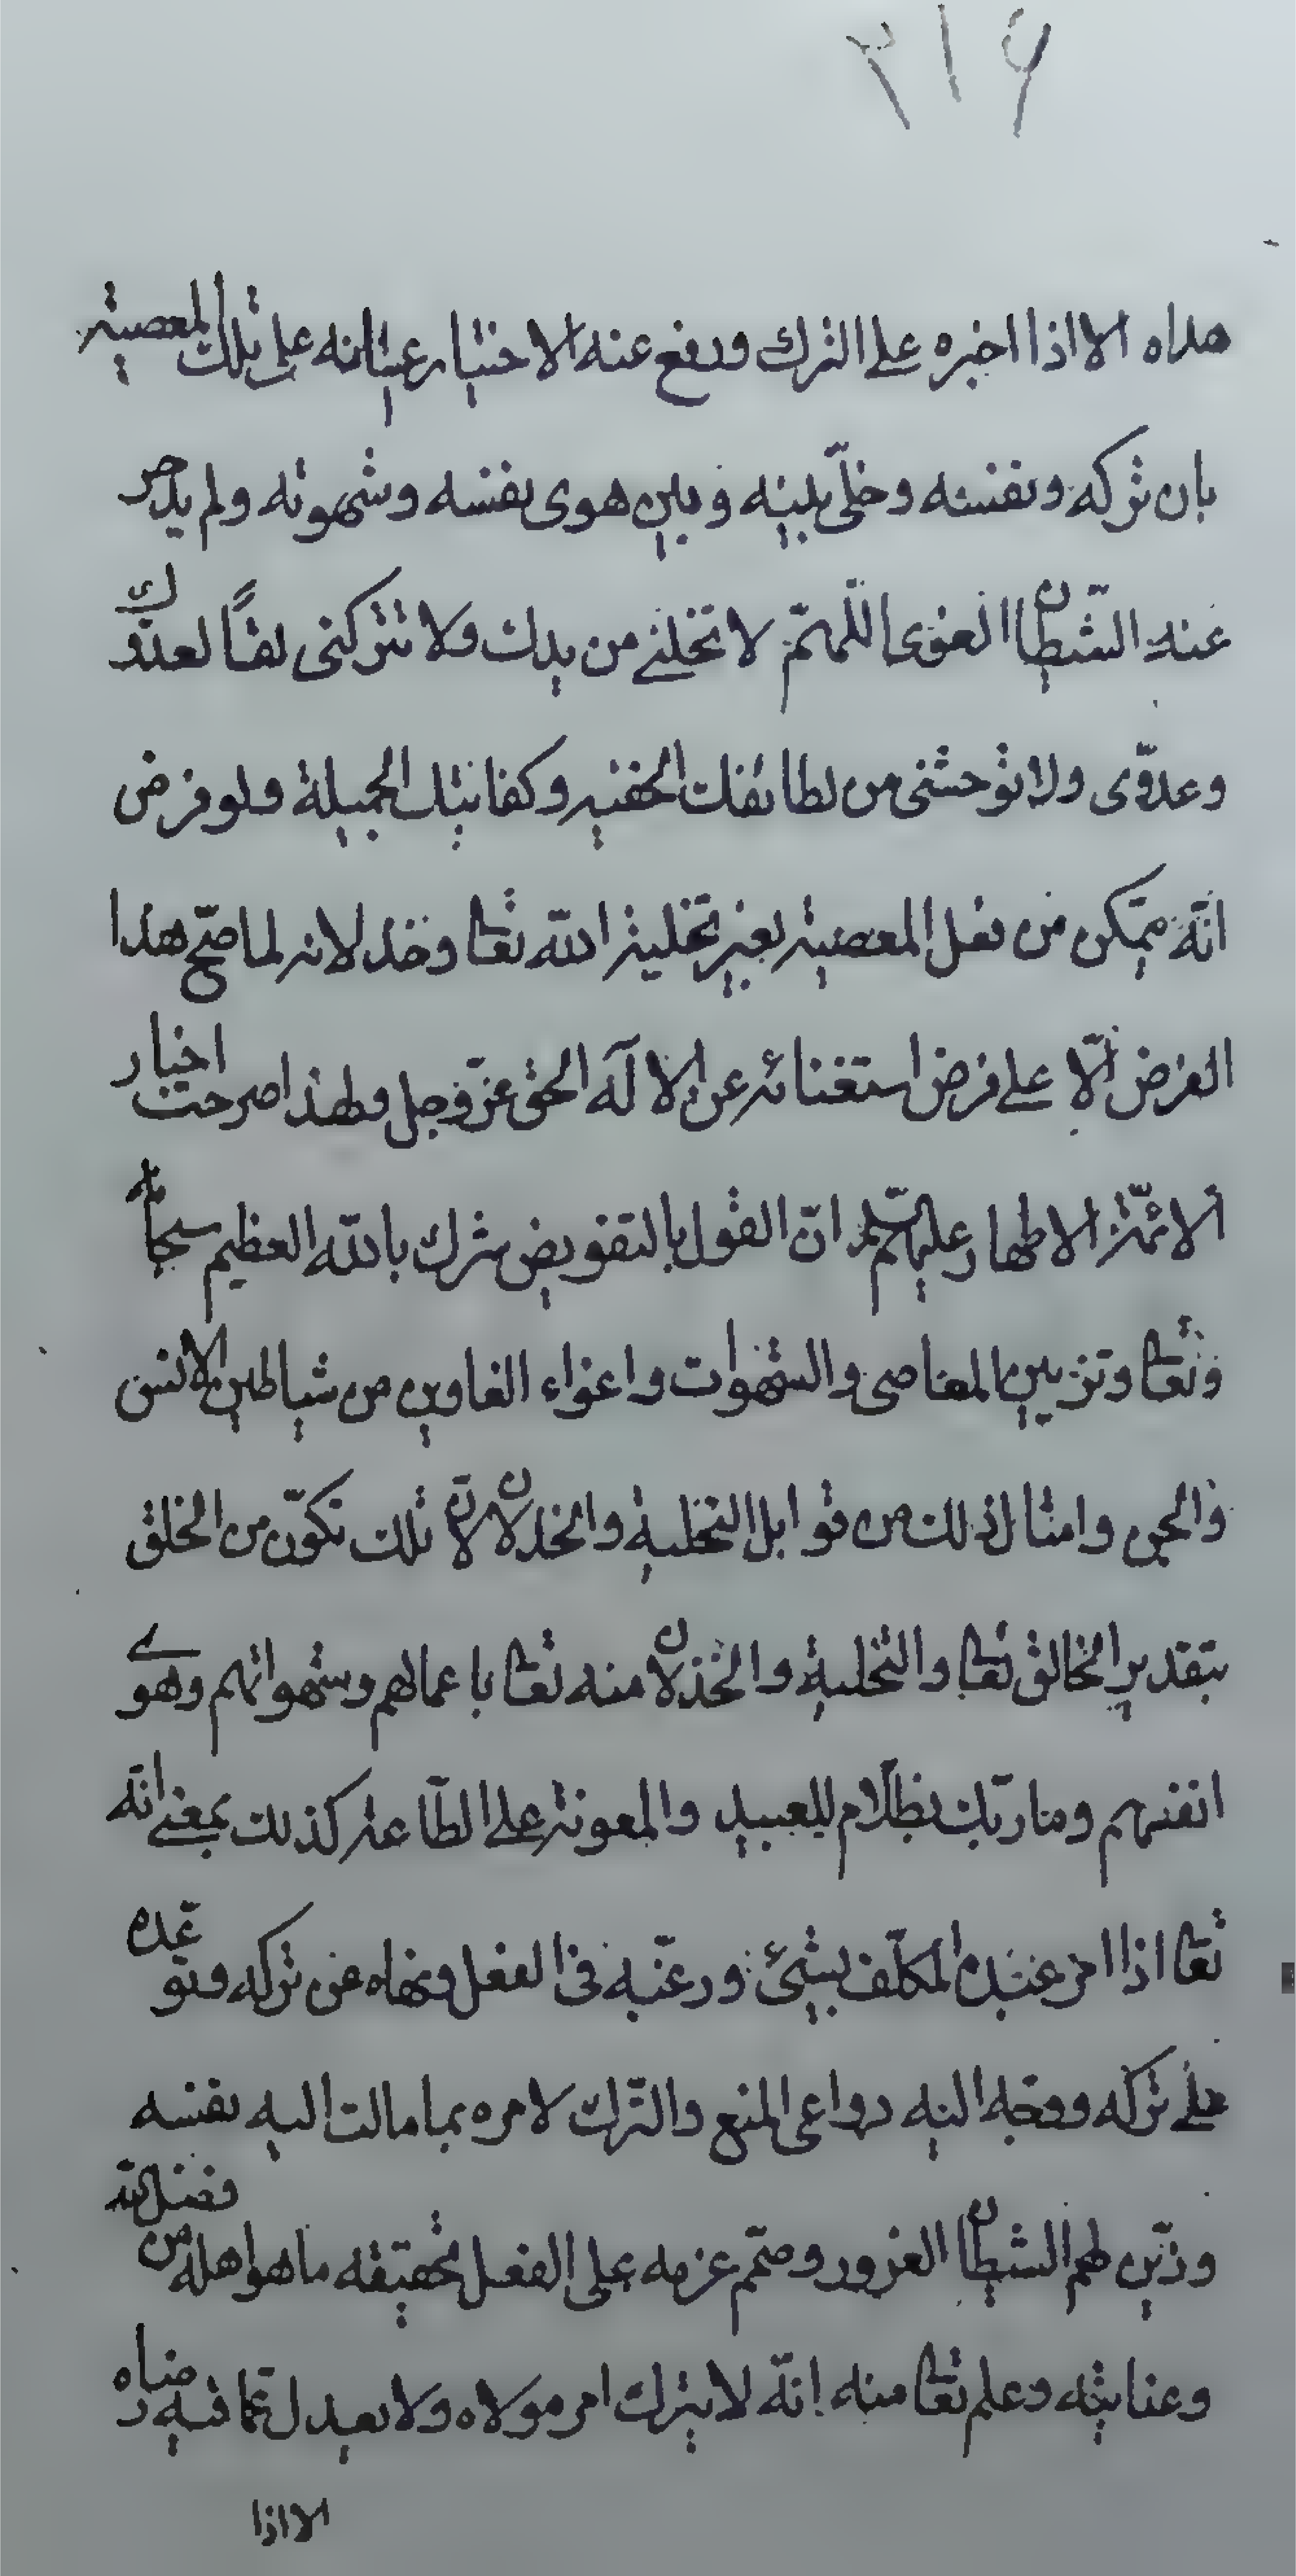 ٢١٦
هداه الا اذا اجبره على الترك ودفع عنه الاختيار عيانه على تلك المعصية
بان تركه ونفسه وخلّى بينه وبين هوى نفسه وشهوته ولم يدحر
عنه الشّيطان الغوى اللّهمّ لا تخلنى من يدك ولا تتركنى لقًا لعدوّك
وعدوّى ولا توحشنى من لطائفك الخفيه وكفايتك الجميلة ولو فرض
انّه يمكن من فعل المعصية بغير تخلية اللّه تعالى وخذلانه لما صحّ هذا
الفرض الّا على فرض استغنائه عن الا لٓه الحق عزّ وجل ولهذا صرحت اخبار
الائمّة الاطهار عليهم السّلم انّ القول بالتفويض شرك باللّه العظيم سبحانه
وتعالى وتزيين المعاصى والشهوات واغواء الغاوين من شياطين الانس
والجن وامثال ذلك من قوابل التخلية والخذلان لانّ تلك تكوّن من الخلق
بتقدير الخالق تعالى والتخلية والخذلان منه تعالى باعمالهم وشهواتهم وهوى
انفسهم وما ربّك بظلّام للعبيد والمعونة على الطّاعة كذلك بمعنى انّه
تعالى اذا امر عبده المكلّف بشئ ورغّبه فى الفعل ونهاه عن تركه وتوعّده
على تركه ووجّه اليه دواعى المنع والتّرك لامره بما مالت اليه نفسه
وزيّن لهم الشيطان الغرور وصمّم عزمه على الفعل تحقيقه ما هو اهله من فضل اللّه
وعنايته وعلم تعالى منه انّه لا يترك امر مولاه ولا يعدل عمّا فيه رضاه
الا اذا